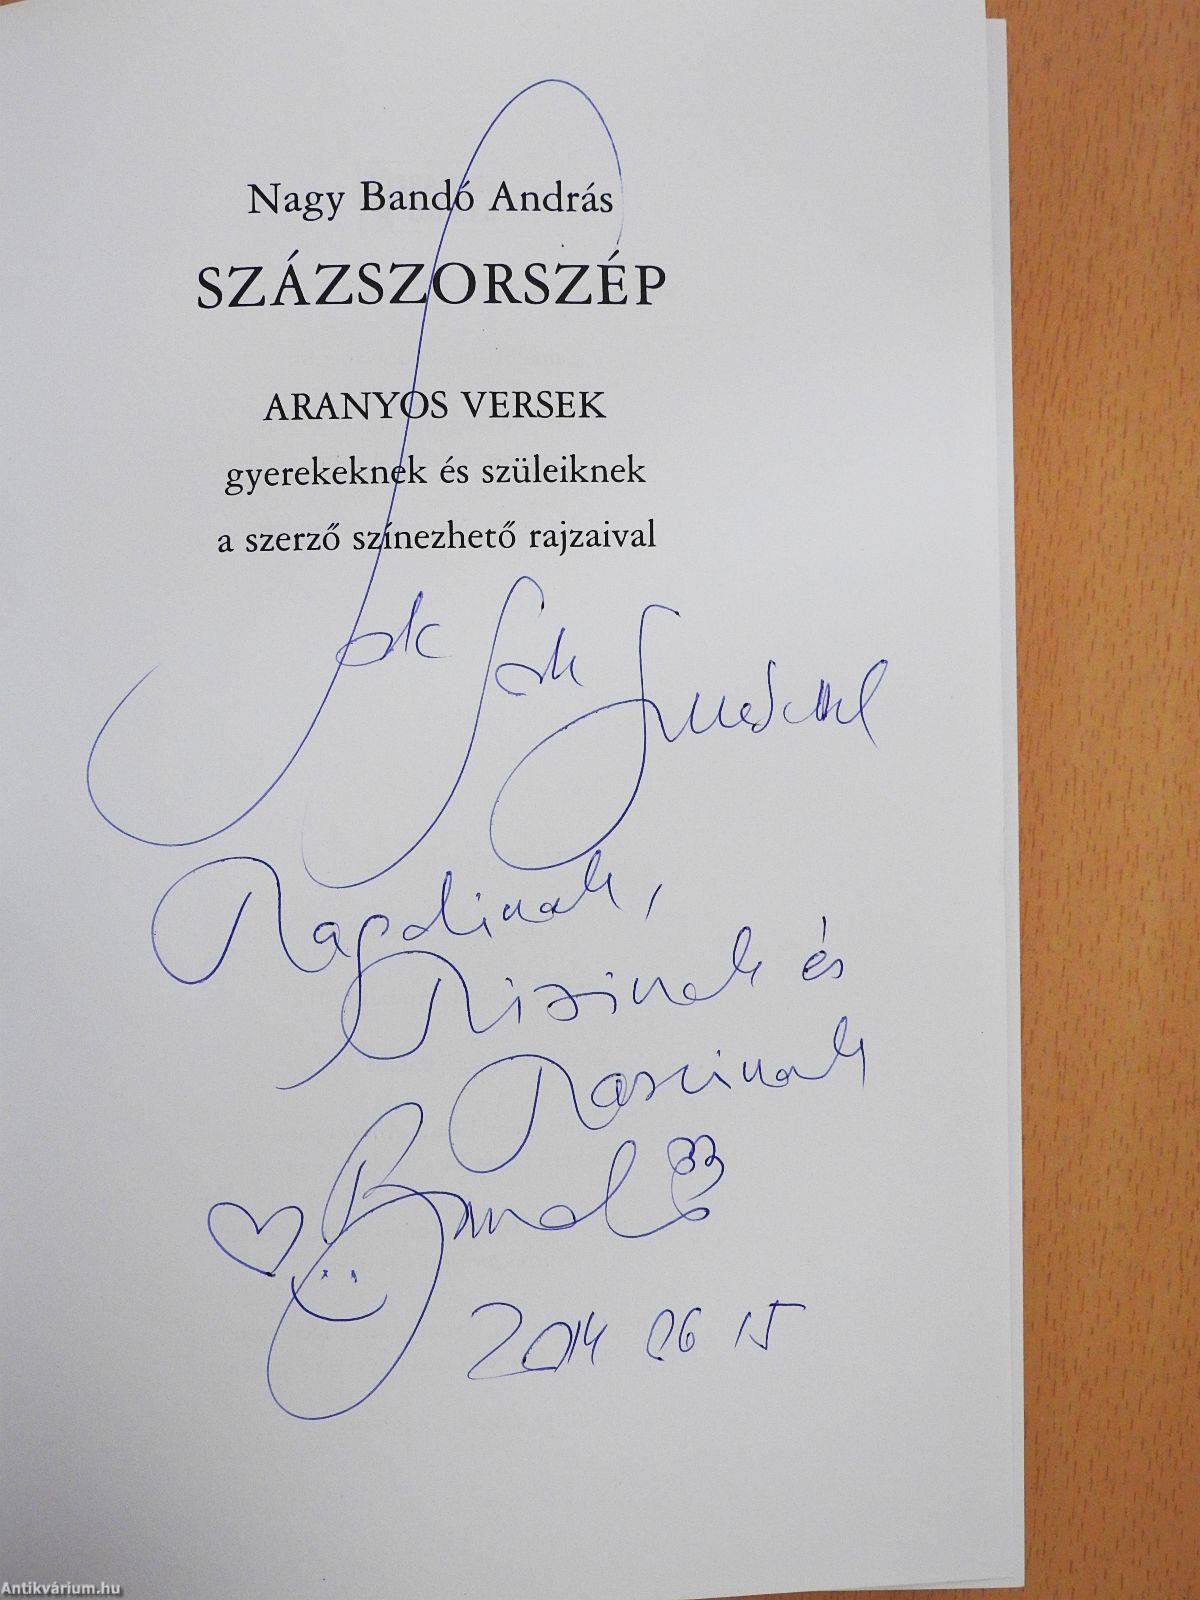 Nagy Bandó András
SZÁZSZORSZÉP
ARANYOS VERSEK
gyerekeknek és szüleiknek
a szerző színezhető rajzaival
Sok sok
és
Bandó
2014 06 15
Antikvárium.hu